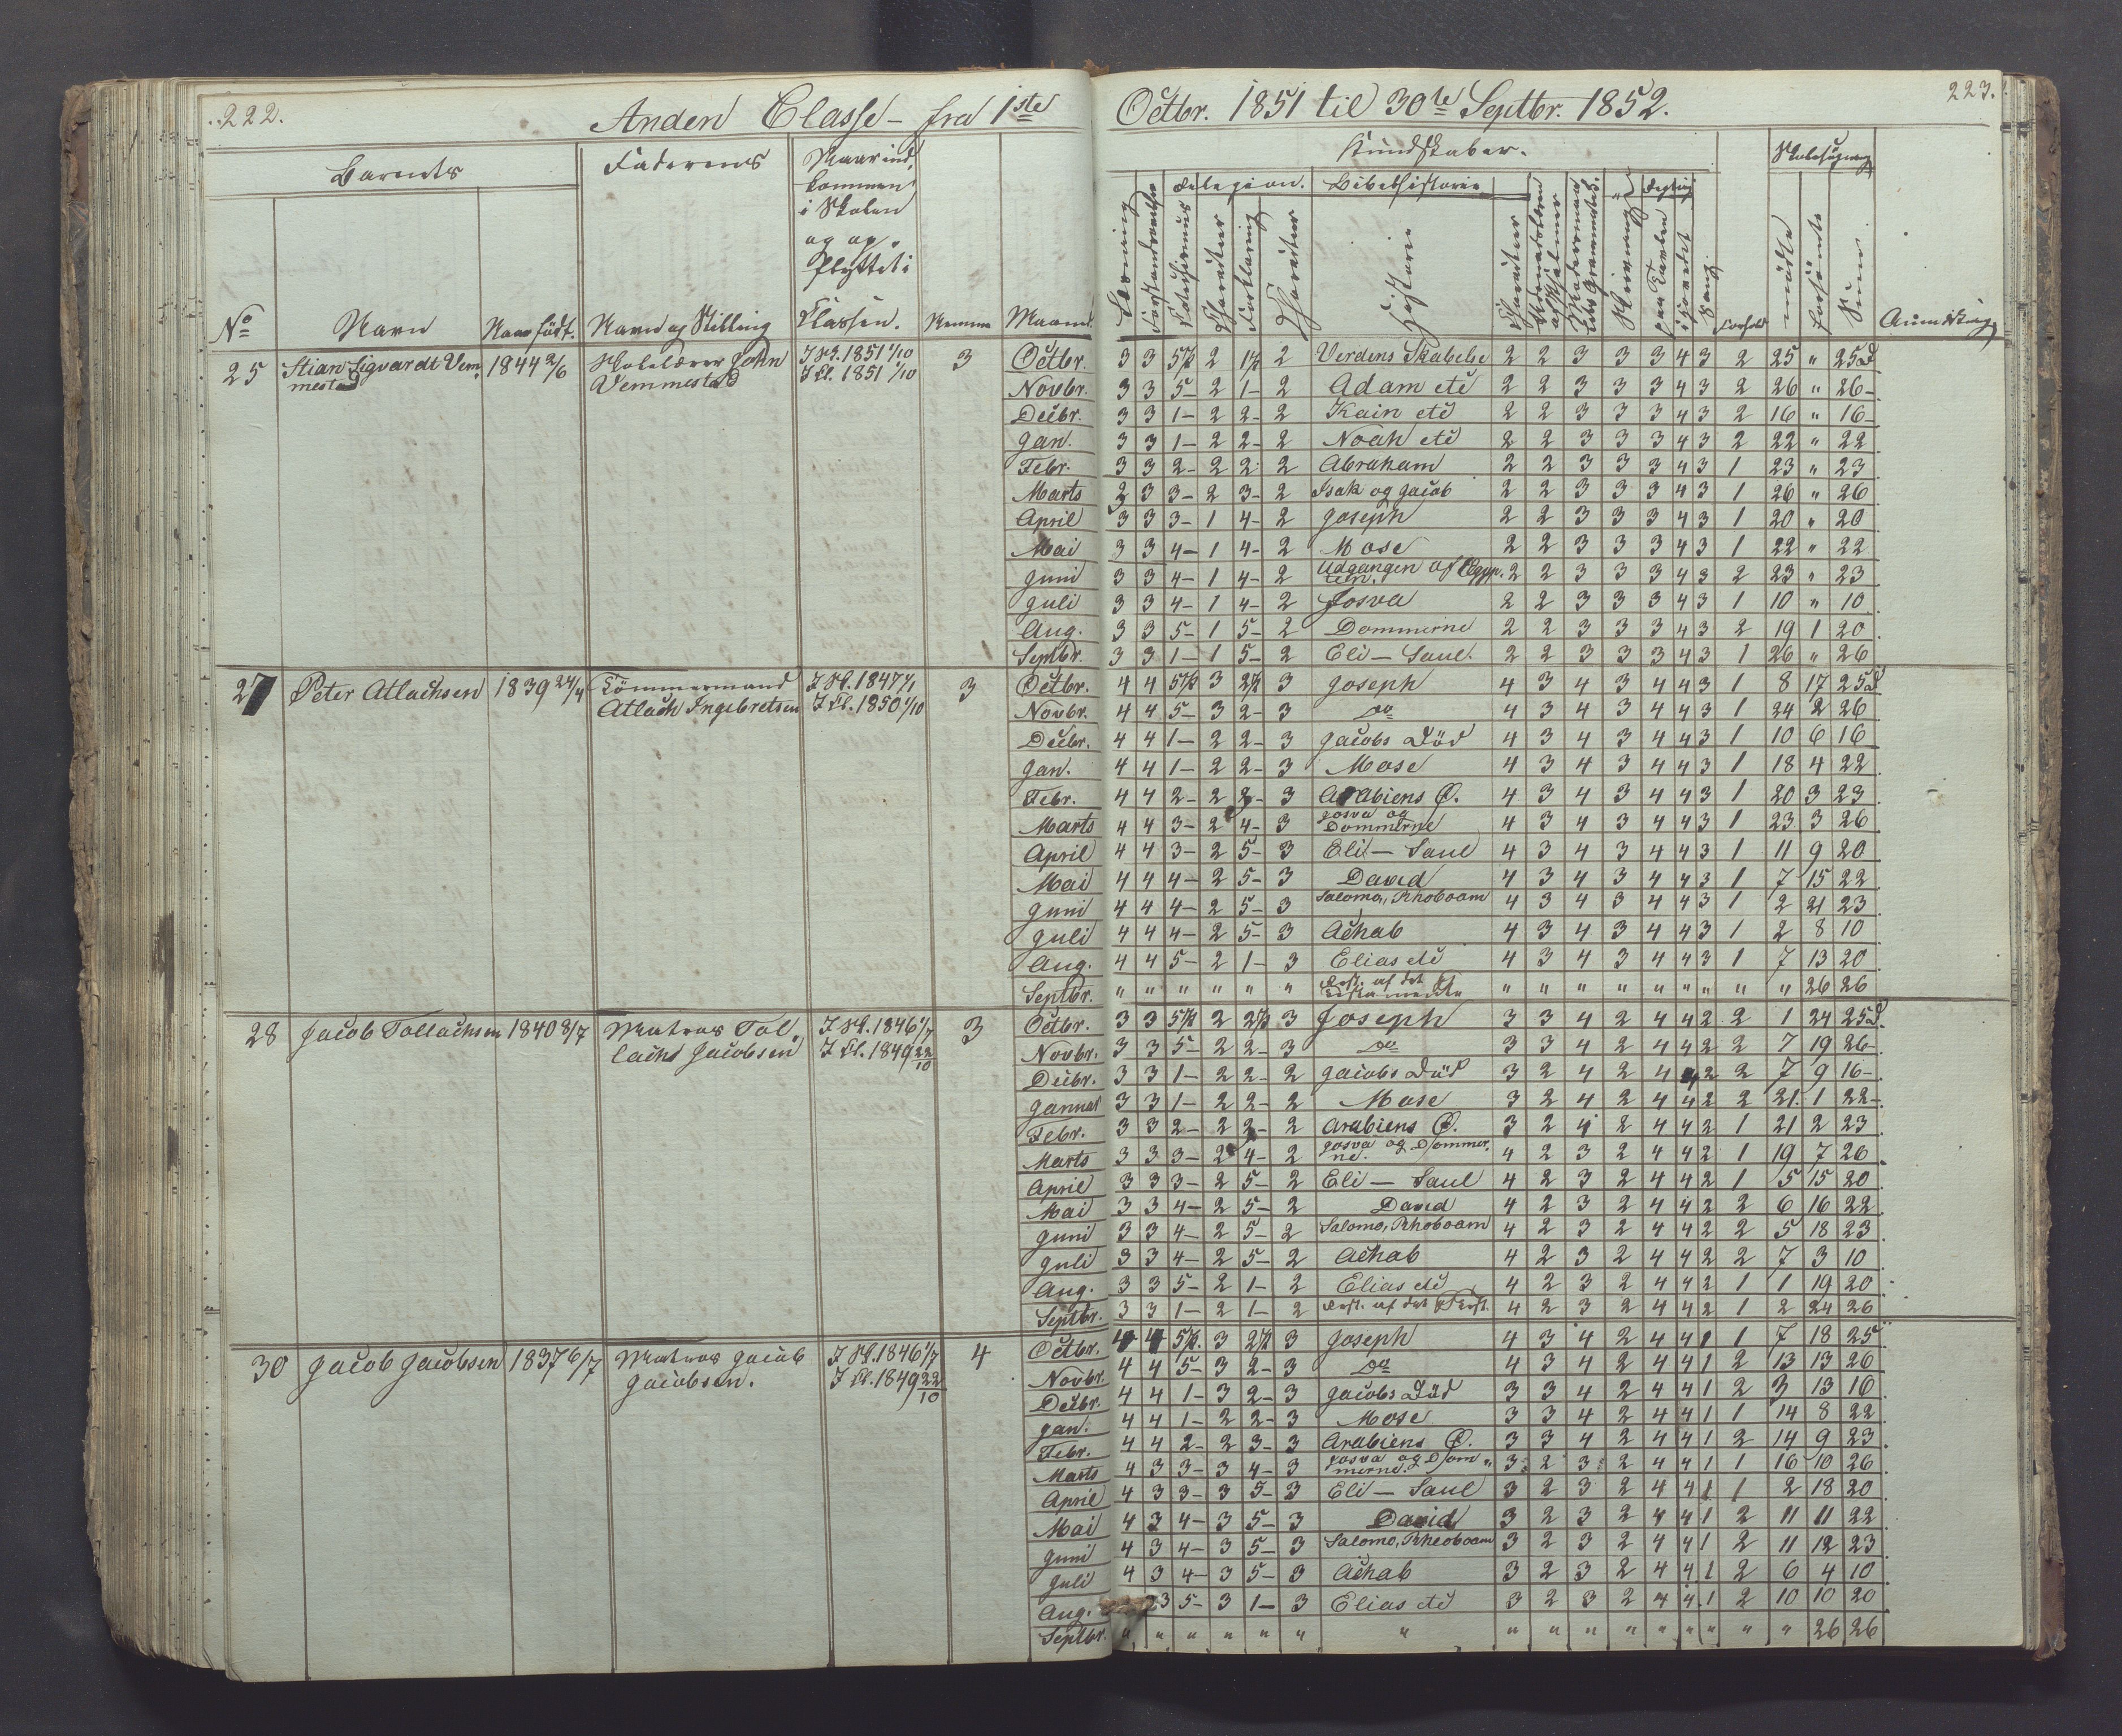 222.
Anden Classe – fra 1ste
Octbr. 1851 til 30te Septbr. 1852.
223.
Barnets Faderens Naar ind kommen i Skolen og op flyttet i Classen.
Kundskaber. Skolesögning
Religion. Bibelhistorie
No Navn Naar födt. Navn og Stilling Nemme Maaned
Læsning Charakteer Forklaring Charakteer Historie Charakteer Skrivning paa Tavlen Sang Forhold mödte forsömte Sum Anmærkning
25 Stian Sigvardt Vem- 1844 2/6 Skolelærer John I Sk. 1851 1/10 3 Octbr. 3 3 5te 2 1te 2 Verdens Skabelse 2 2 3 3 3 4 3 2 25 " 25 D
mestad Vemmestad I Cl. 1851 1/10
Novbr. 3 3 5– 2 1– 2 Adam etc 2 2 3 3 3 4 3 2 26 " 26–
Decbr. 3 3 1– 2 2– 2 Kain etc 2 2 3 3 3 4 3 2 16 " 16–
Jan. 3 3 1– 2 2– 2 Noah etc 2 2 3 3 3 4 3 2 22 " 22
Febr. 3 3 2– 2 2– 2 Abraham 2 2 3 3 3 4 3 1 23 " 23
Marts 3 3 3– 2 3– 2 Isak og Jacob 2 2 3 3 3 4 3 1 26 " 26
April 3 3 3– 1 4– 2 Joseph 2 2 3 3 3 4 3 1 20 " 20
Mai 3 3 4– 1 4– 2 Mose 2 2 3 3 3 4 3 1 22 " 22
Juni 3 3 4– 1 4– 2 Udgangen af Ægyp- 2 2 3 3 3 4 3 2 23 " 23
ten.
Juli 3 3 4– 1 4– 2 Josva 2 2 3 3 3 4 3 1 10 " 10
Aug. 3 3 5– 1 5– 2 Dommerne 2 2 3 3 3 4 3 2 19 1 20
Septbr. 3 3 1– 1 5– 2 Eli – Saul. 2 2 3 3 3 4 3 1 26 " 26
27 Peter Atlachsen 1839 24/4 Tömmermand I Sk. 1847 1/1 3 Octbr. 4 4 5te 3 2te 3 Joseph 4 3 4 3 4 4 3 1 8 17 25 D
Atlach Ingebretsen I Cl. 1850 1/10
Novbr. 4 4 5– 3 2– 3 Do 4 3 4 3 4 4 3 1 24 2 26
Decbr. 4 4 1– 2 2– 3 Jacobs Död 4 3 4 3 4 4 3 1 10 6 16
Jan. 4 4 1– 2 2– 3 Mose 4 3 4 3 4 4 3 1 18 4 22
Febr. 4 4 2– 2 3– 3 Arabiens Ö. 4 3 4 3 4 4 3 1 20 3 23
Marts 4 4 3– 2 4– 3 Josva og 4 3 4 3 4 4 3 1 23 3 26
Dommerne
April 4 4 3– 2 5– 3 Eli – Saul 4 3 4 3 4 4 3 1 11 9 20
Mai 4 4 4– 2 5– 3 David 4 3 4 3 4 4 3 1 7 15 22
Juni 4 4 4– 2 5– 3 Salomo, Rhoboam 4 3 4 3 4 4 3 1 2 21 23
Juli 4 4 4– 2 5– 3 Achab 4 3 4 3 4 4 3 1 2 8 10
Aug. 4 4 5– 2 1– 3 Elias etc 4 3 4 3 4 4 3 1 7 13 20
Septbr. " " " " " " Rest. af det " " " " " " " " " 26 26
28 Jacob Tollachsen 1840 8/7 Matros Tol- I Sk. 1846 1/7 3 Octbr. 3 3 5te 2 2te 3 Joseph 3 3 4 2 4 4 2 2 1 24 25 D.
lachs Jacobsen I Cl. 1849 22/10
Novbr. 3 3 5– 2 2– 3 Do 3 3 4 2 4 4 2 2 7 19 26–
Decbr. 3 3 1– 2 2– 2 Jacobs Död 3 2 4 2 4 4 2 2 7 9 16–
Januar 3 3 1– 2 2– 2 Mose 3 2 4 2 4 4 2 2 21. 1 22–
Febr. 3 3 2– 2 2– 2 Arabiens Ö. 3 2 4 2 4 4 2 1 21 2 23
Marts 3 3 3– 2 4– 2 Josva og Dommer- 4 2 3 2 4 4 2 1 19 7 26
ne.
April 3 3 3– 2 5– 2 Eli – Saul 4 2 3 2 4 4 2 1 5 15 20
Mai 3 3 4– 2 5– 2 David 4 2 3 2 4 4 2 2 6 16 22
Juni 3 3 4– 2 5– 2 Salomo, Rhoboam 4 2 3 2 4 4 2 2 5 18 23
Juli 3 3 4– 2 5– 2 Achab 4 2 3 2 4 4 2 2 7 3 10
Aug. 3 3 5– 2 1– 2 Elias etc 4 2 3 2 4 4 2 1 1 19 20
Septbr. 3 3 1– 2 1– 2 Rest. af det 4 2 3 2 4 4 2 1 2 24 26
30 Jacob Jacobsen 1837 6/7 Matros Jacob I Sk. 1846 1/7 4 Octbr. 4 4 5te. 3 2te 3 Joseph 4 3 4 2 4 4 1 1 7 18 25
Jacobsen. I Cl. 1849 22/10
Novbr. 4 4 5– 3 2– 3 Do 4 3 4 2 4 4 1 2 13 13 26
Decbr. 4 4 1– 3 2– 3 Jacobs Död 3 3 4 2 4 4 1 2 3 13 16
Jan. 4 4 1– 2 2– 3 Mose 3 3 4 2 4 4 1 1 14 8 22
Febr. 4 4 2– 2 3– 3 Arabiens Ö. 3 3 4 2 4 4 1 2 14 9 23
Marts 4 3 3– 3 4– 3 Josva og Dom- 3 2 3 2 4 4 1 1 16 10 26
merne.
April 4 3 3– 3 5– 3 Eli – Saul 3 2 3 2 4 4 1 1 2 18 20
Mai 4 3 4– 3 5– 3 David 3 2 3 2 4 4 1 2 11 11 22
Juni 4 3 4– 3 5– 3 Salomo, Rheoboam 3 2 3 2 4 4 1 2 11 12 23
Juli 4 3 4– 3 5– 3 Achab 3 2 3 2 4 4 1 2 6 4 10
Aug. 3 5– 3 1– 3 Elias etc 3 2 3 2 4 4 1 2 10 10 20
Septbr. " " " " " " " " " " " " " " " " 26 26